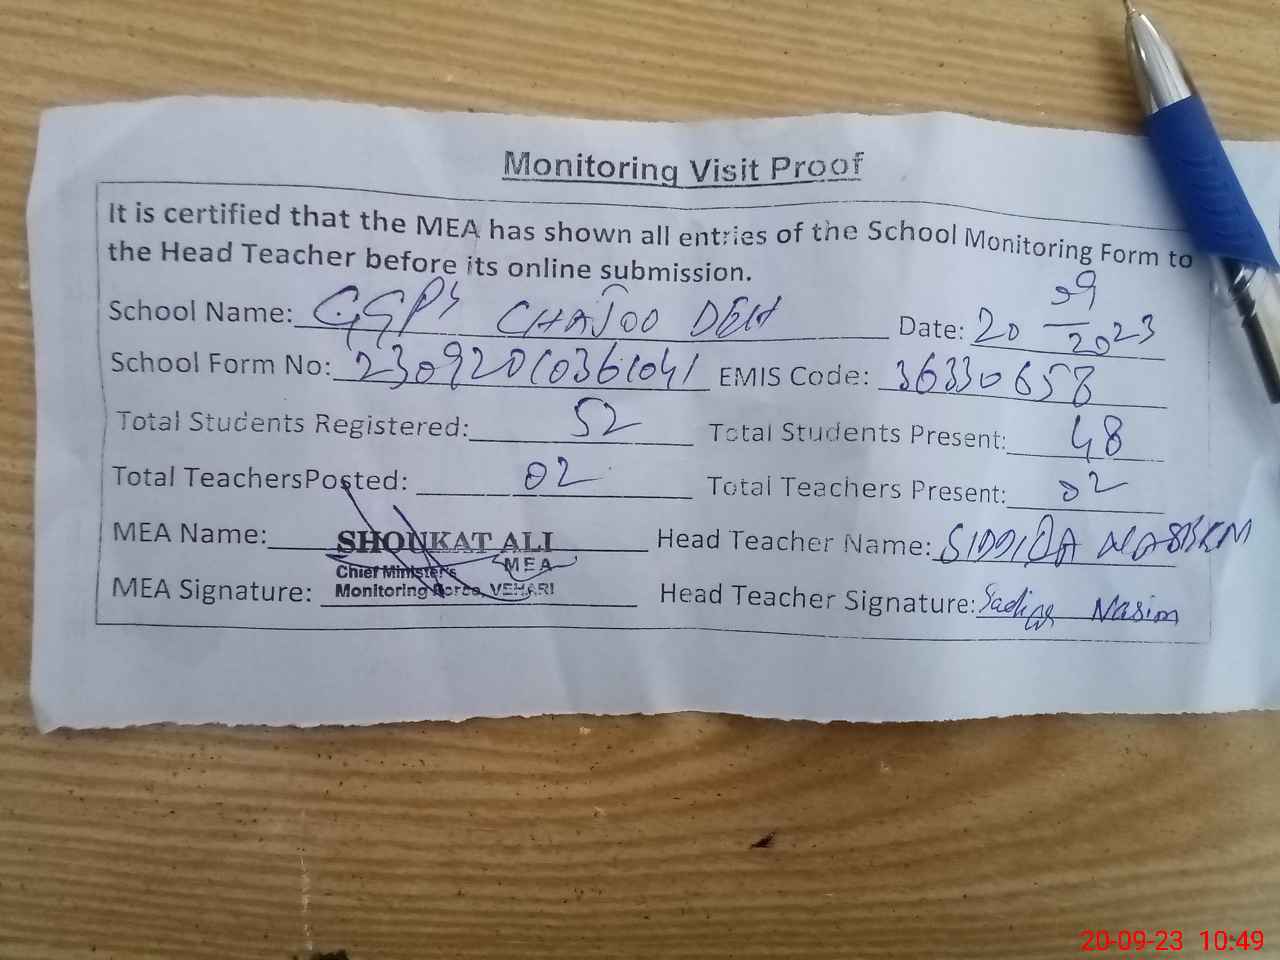 Monitoring Visit Proof
It is certified that the MEA has shown all entries of the School Monitoring Form to
the Head Teacher before its online submission.
School Name: GGPS CHAJOO DEH Date: 20 09 2023
School Form No: EMIS Code: 36330658
Total Students Registered: 52 Total Students Present: 48
Total TeachersPosted: 02 Total Teachers Present: 02
MEA Name: SHOUKAT ALI Head Teacher Name: SIDDIQA
MEA
Chief Minister's
Monitoring Force, VEHARI
MEA Signature: Head Teacher Signature: Nasim
20-09-23 10:49